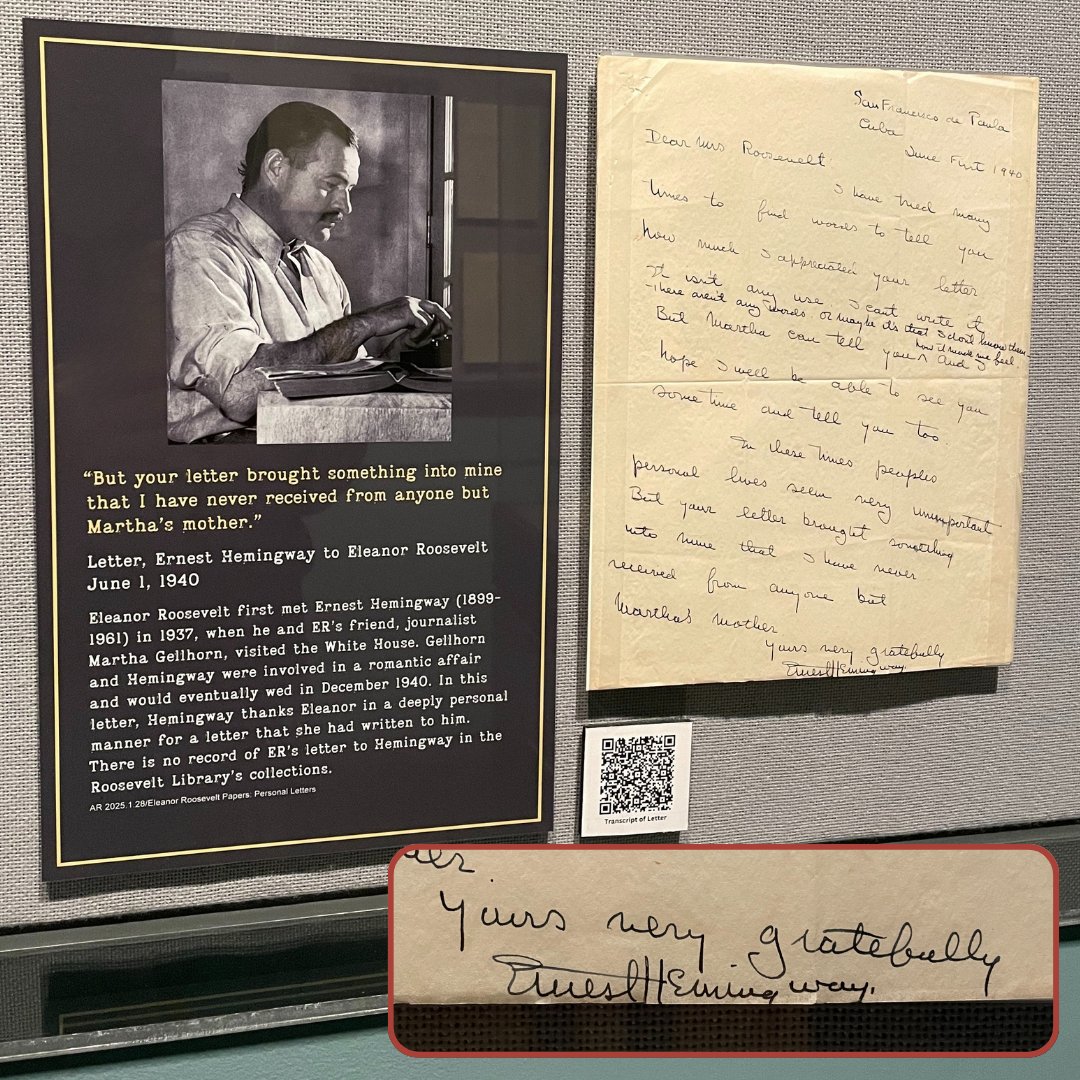 “But your letter brought something into mine
that I have never received from anyone but
Martha’s mother.”
Letter, Ernest Hemingway to Eleanor Roosevelt
June 1, 1940
Eleanor Roosevelt first met Ernest Hemingway (1899-
1961) in 1937, when he and ER’s friend, journalist
Martha Gellhorn, visited the White House. Gellhorn
and Hemingway were involved in a romantic affair
and would eventually wed in December 1940. In this
letter, Hemingway thanks Eleanor in a deeply personal
manner for a letter that she had written to him.
There is no record of ER’s letter to Hemingway in the
Roosevelt Library’s collections.
AR 2025.1.28/Eleanor Roosevelt Papers: Personal Letters
San Francisco de Paula
Cuba
June First 1940
Dear Mrs Roosevelt
I have tried many
times to find words to tell you
how much I appreciated your letter
It isn't any use. I cant write it
There aren't any words or maybe it's that I dont know them
But Martha can tell you ^ And
how it made me feel
hope I will be able to see you
some time and tell you too.
In these times peoples
personal lives seem very unimportant
But your letter brought something
into mine that I have never
received from anyone but
Martha's mother
Yours very gratefully
Ernest Hemingway.
Transcript of Letter
Yours very gratefully
Ernest Hemingway.